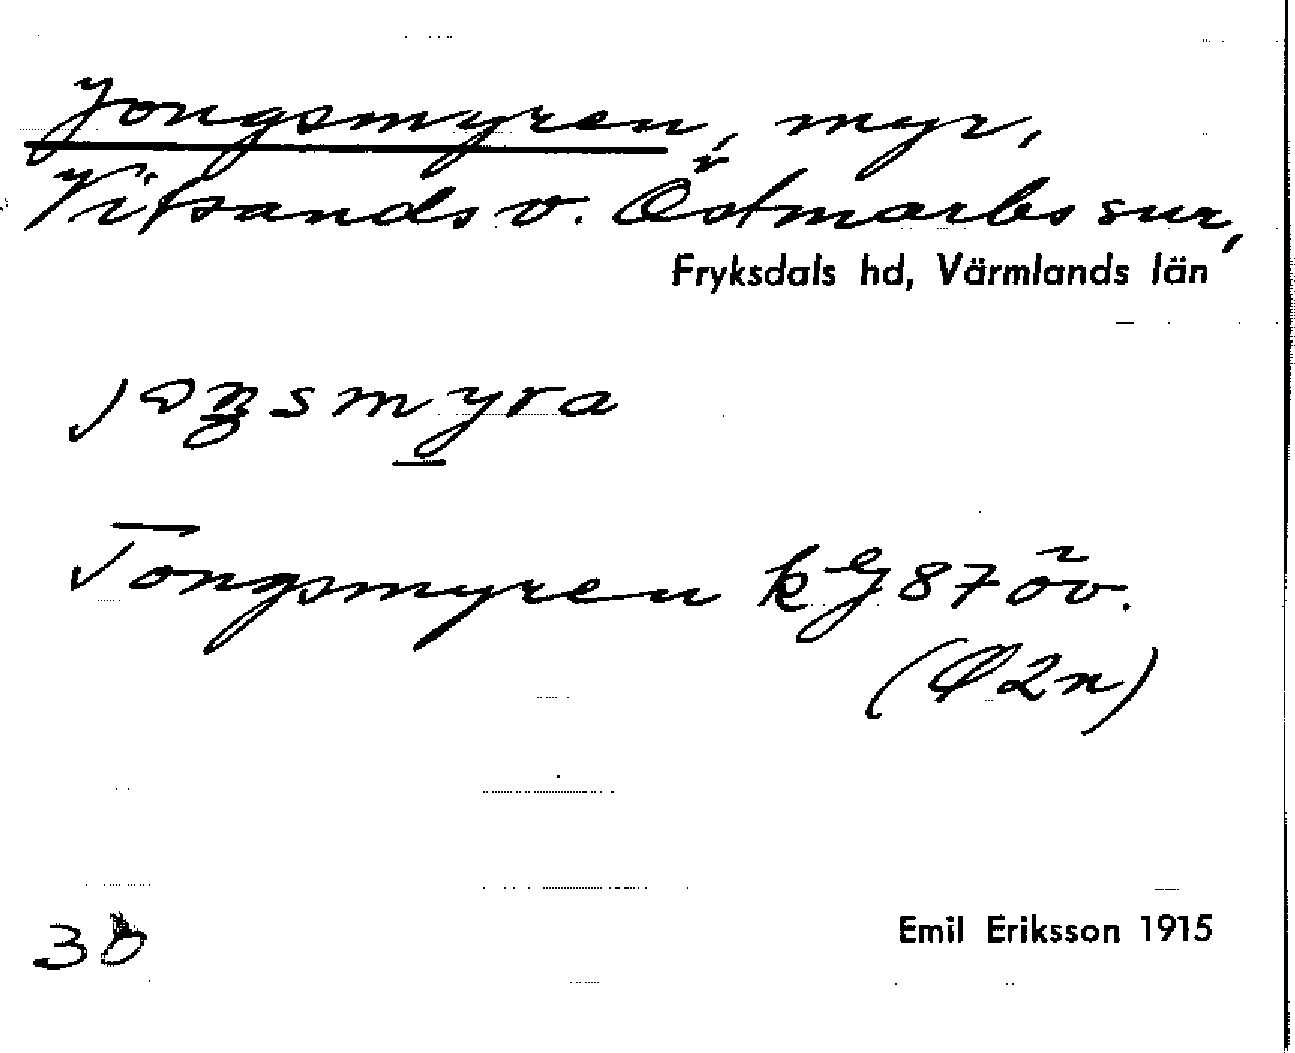 Jongsmyren, myr,
Vitsands o. Östmarks snr,
Fryksdals hd, Värmlands län
joŋsmyra
Tongsmyren keg 87 öv.
(Ö 2 n)
Emil Eriksson 1915